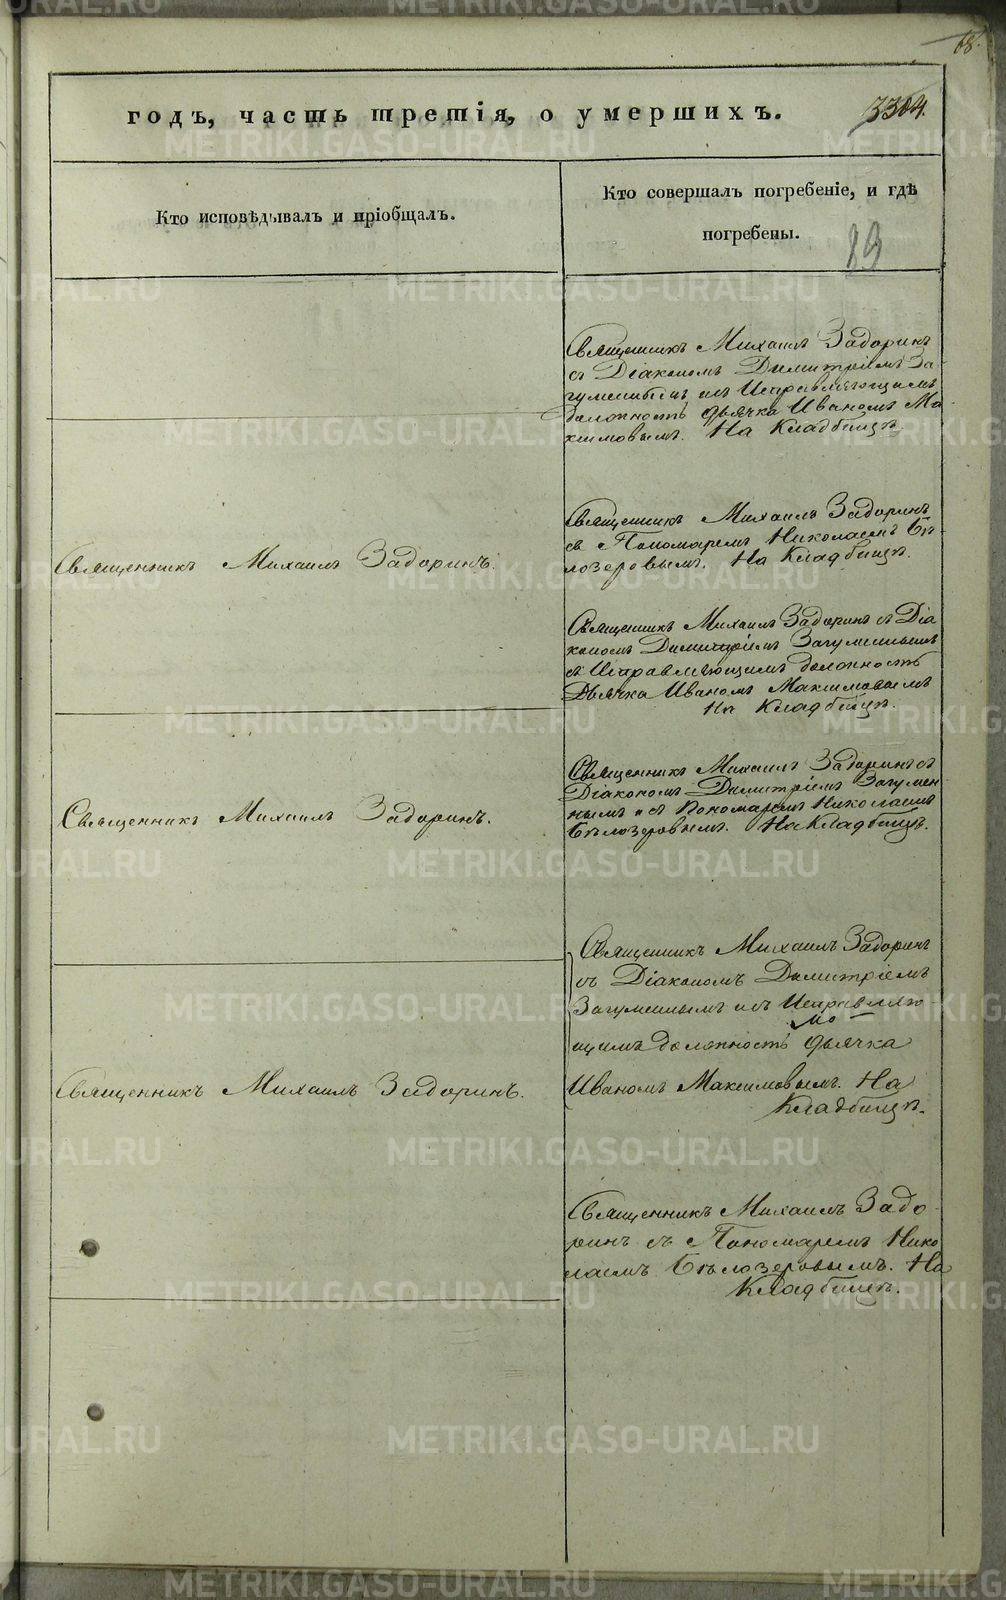 68.
годъ, часть третія, о умершихъ.
3304.
Кто исповѣдывалъ и пріобщалъ.
Кто совершалъ погребеніе, и гдѣ
погребены.
89
Священникъ Михаилъ Задоринъ
съ Діакономъ Димитріемъ За-
гуменнымъ и съ Исправляющимъ
должность дьячка Иваномъ Ма-
ксимовымъ. На Кладбищѣ.
Священникъ Михаилъ Задоринъ.
Священникъ Михаилъ Задоринъ
съ Пономаремъ Николаемъ Бѣ-
лозеровымъ. На Кладбищѣ.
Священникъ Михаилъ Задоринъ съ Діа
кономъ Димитріемъ Загуменнымъ
съ Исправляющимъ должность
Дьячка Иваномъ Максимовымъ
На Кладбищѣ.
Священникъ Михаилъ Задоринъ.
Священникъ Михаилъ Задоринъ съ
Діакономъ Димитріемъ Загумен
нымъ и съ Пономаремъ Николаемъ
Бѣлозеровымъ. На Кладбищѣ.
Священникъ Михаилъ Задоринъ.
Священникъ Михаилъ Задоринъ
съ Діакономъ Димитріемъ
Загуменнымъ и съ Исправляю-
щимъ должность дьячка
Иваномъ Максимовымъ. На
Кладбищѣ.
Священникъ Михаилъ Задо-
ринъ съ Пономаремъ Нико
лаемъ Бѣлозеровымъ. На
Кладбищѣ.
METRIKI.GASO-URAL.RU